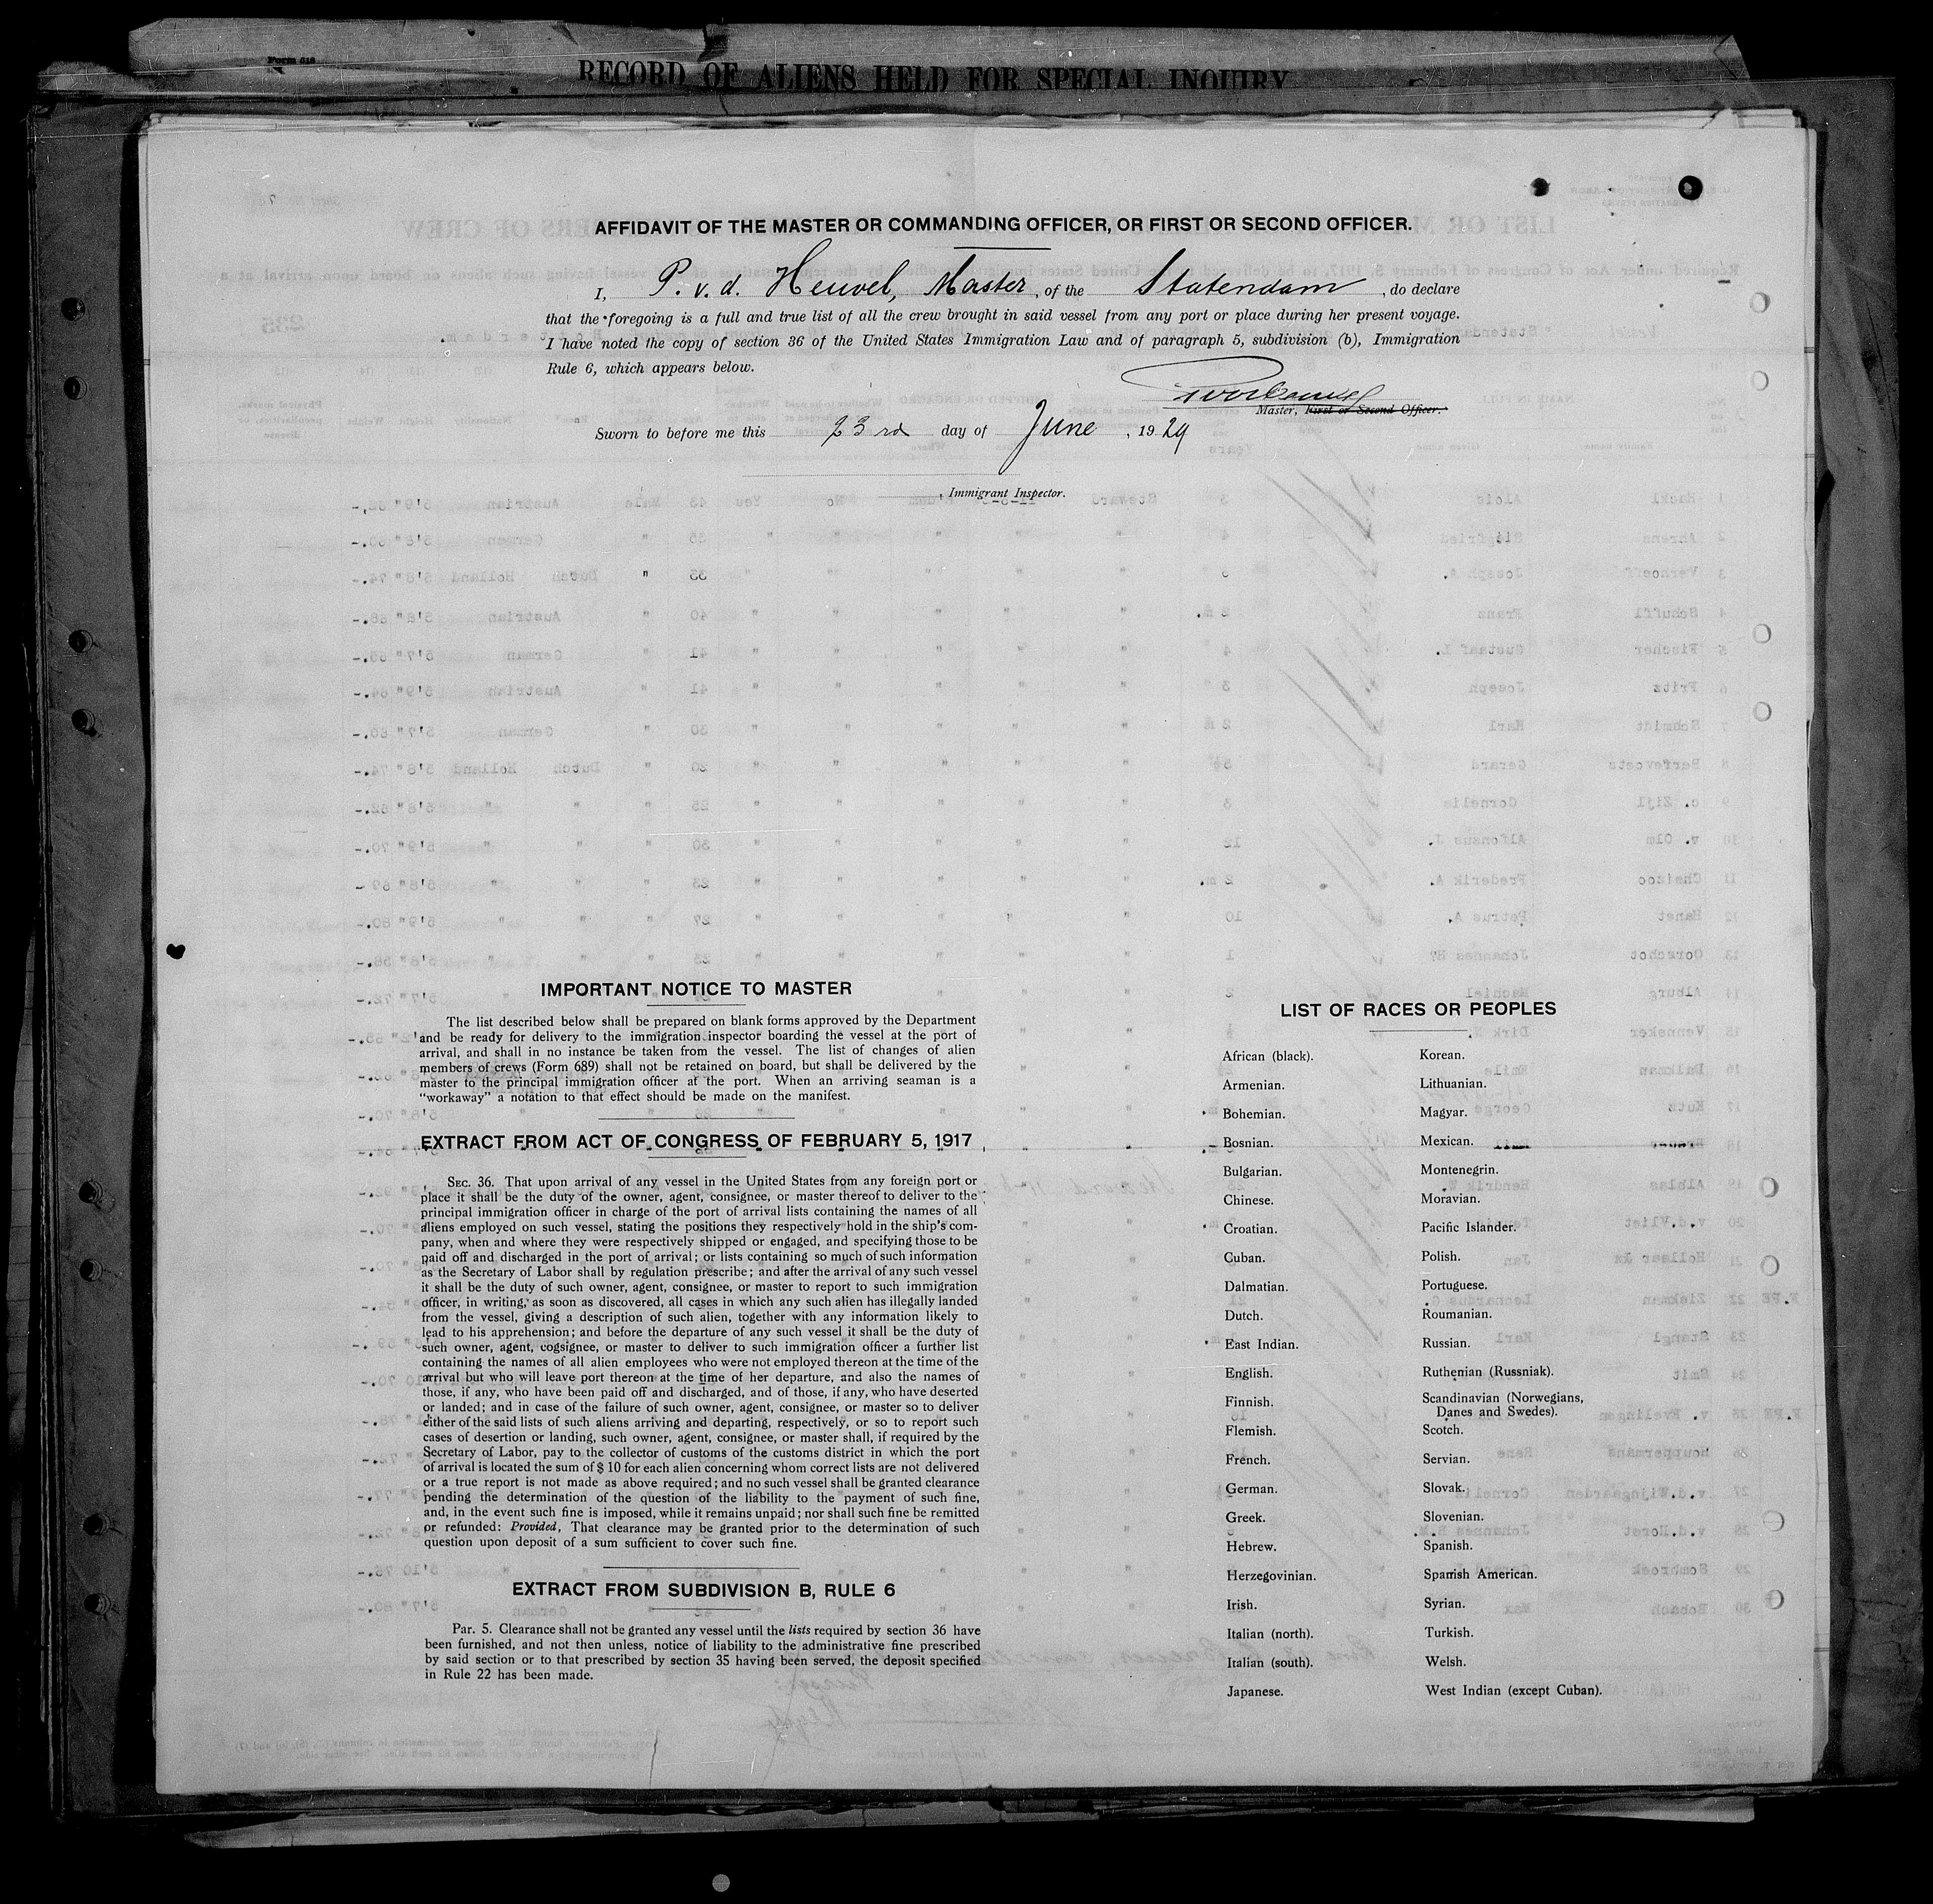 Form 618
RECORD OF ALIENS HELD FOR SPECIAL INQUIRY
AFFIDAVIT OF THE MASTER OR COMMANDING OFFICER, OR FIRST OR SECOND OFFICER.
I, P. v. d. Heuvel, Master, of the Statendam, do declare
that the foregoing is a full and true list of all the crew brought in said vessel from any port or place during her present voyage.
I have noted the copy of section 36 of the United States Immigration Law and of paragraph 5, subdivision (b), Immigration
Rule 6, which appears below.
Master, First or Second Officer.
Sworn to before me this 23rd day of June, 1929
, Immigrant Inspector.
IMPORTANT NOTICE TO MASTER
The list described below shall be prepared on blank forms approved by the Department
and be ready for delivery to the immigration inspector boarding the vessel at the port of
arrival, and shall in no instance be taken from the vessel. The list of changes of alien
members of crews (Form 689) shall not be retained on board, but shall be delivered by the
master to the principal immigration officer at the port. When an arriving seaman is a
"workaway" a notation to that effect should be made on the manifest.
EXTRACT FROM ACT OF CONGRESS OF FEBRUARY 5, 1917
SEC. 36. That upon arrival of any vessel in the United States from any foreign port or
place it shall be the duty of the owner, agent, consignee, or master thereof to deliver to the
principal immigration officer in charge of the port of arrival lists containing the names of all
aliens employed on such vessel, stating the positions they respectively hold in the ship's com-
pany, when and where they were respectively shipped or engaged, and specifying those to be
paid off and discharged in the port of arrival; or lists containing so much of such information
as the Secretary of Labor shall by regulation prescribe; and after the arrival of any such vessel
it shall be the duty of such owner, agent, consignee, or master to report to such immigration
officer, in writing, as soon as discovered, all cases in which any such alien has illegally landed
from the vessel, giving a description of such alien, together with any information likely to
lead to his apprehension; and before the departure of any such vessel it shall be the duty of
such owner, agent, cogsignee, or master to deliver to such immigration officer a further list
containing the names of all alien employees who were not employed thereon at the time of the
arrival but who will leave port thereon at the time of her departure, and also the names of
those, if any, who have been paid off and discharged, and of those, if any, who have deserted
or landed; and in case of the failure of such owner, agent, consignee, or master so to deliver
either of the said lists of such aliens arriving and departing, respectively, or so to report such
cases of desertion or landing, such owner, agent, consignee, or master shall, if required by the
Secretary of Labor, pay to the collector of customs of the customs district in which the port
of arrival is located the sum of $10 for each alien concerning whom correct lists are not delivered
or a true report is not made as above required; and no such vessel shall be granted clearance
pending the determination of the question of the liability to the payment of such fine,
and, in the event such fine is imposed, while it remains unpaid; nor shall such fine be remitted
or refunded: Provided, That clearance may be granted prior to the determination of such
question upon deposit of a sum sufficient to cover such fine.
EXTRACT FROM SUBDIVISION B, RULE 6
Par. 5. Clearance shall not be granted any vessel until the lists required by section 36 have
been furnished, and not then unless, notice of liability to the administrative fine prescribed
by said section or to that prescribed by section 35 having been served, the deposit specified
in Rule 22 has been made.
LIST OF RACES OR PEOPLES
African (black).
Armenian.
Bohemian.
Bosnian.
Bulgarian.
Chinese.
Croatian.
Cuban.
Dalmatian.
Dutch.
East Indian.
English.
Finnish.
Flemish.
French.
German.
Greek.
Hebrew.
Herzegovinian.
Irish.
Italian (north).
Italian (south).
Japanese.
Korean.
Lithuanian.
Magyar.
Mexican.
Montenegrin.
Moravian.
Pacific Islander.
Polish.
Portuguese.
Roumanian.
Russian.
Ruthenian (Russniak).
Scandinavian (Norwegians,
Danes and Swedes).
Scotch.
Servian.
Slovak.
Slovenian.
Spanish.
Spanish American.
Syrian.
Turkish.
Welsh.
West Indian (except Cuban).